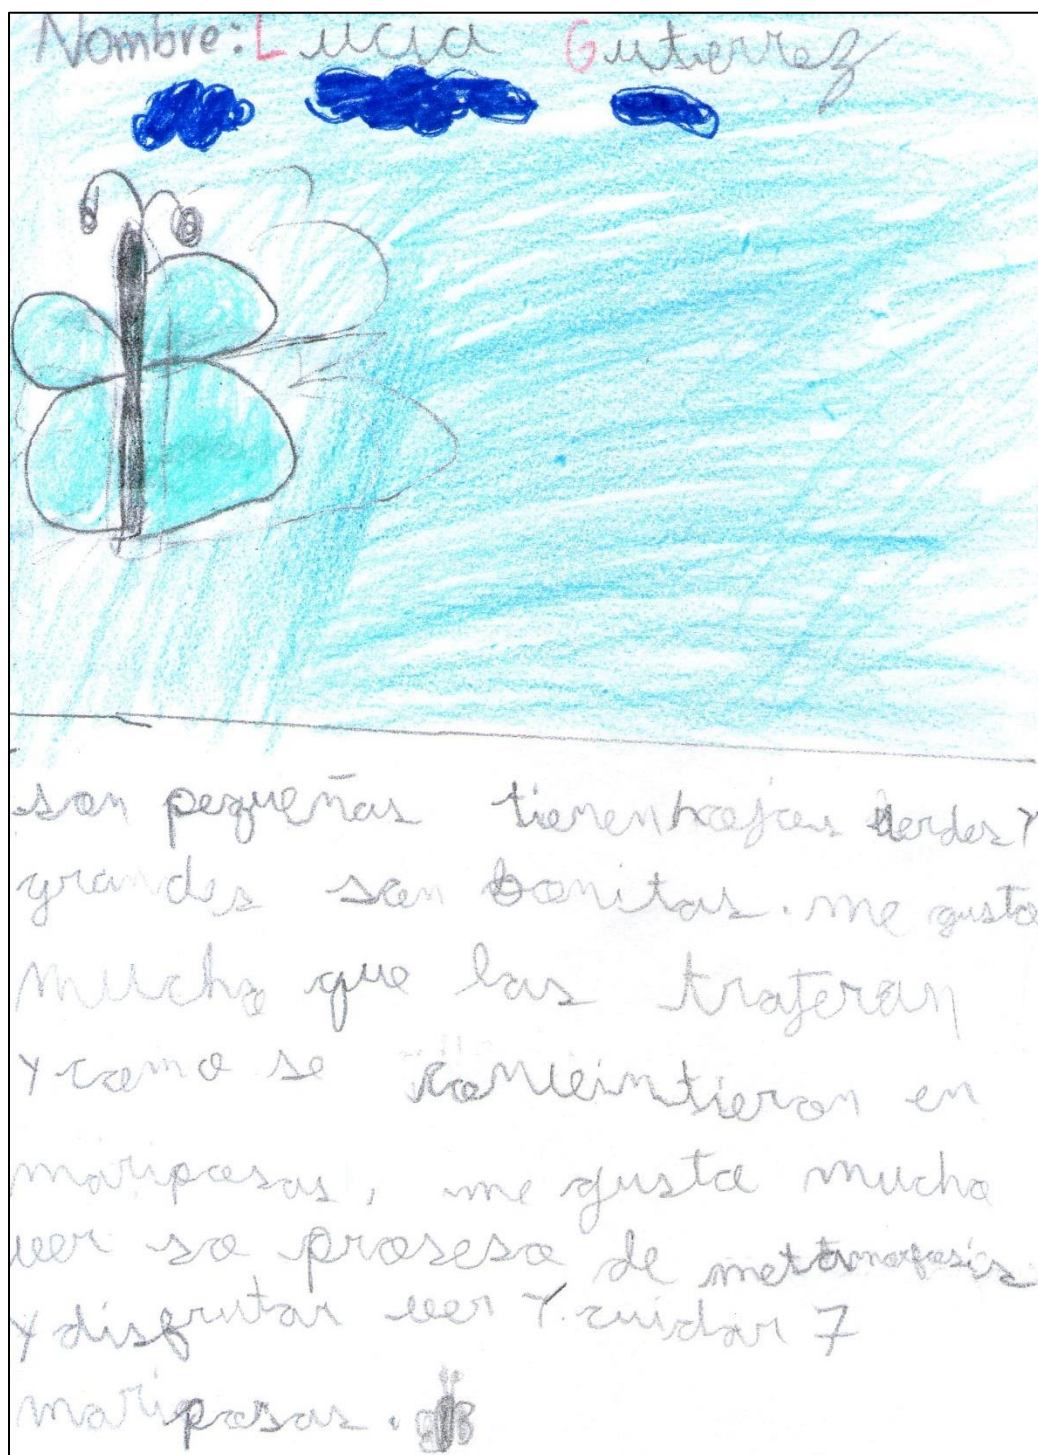 Nombre: Lucia Gutierrez
son pequeñas tienen hojas verdes y
grandes son bonitas. me gusta
mucho que las trajeran
y como se conveintieron en
mariposas, me gusta mucho
ver so proseso de metamorfosis
y disfrutar ver y cuidar 7
mariposas.